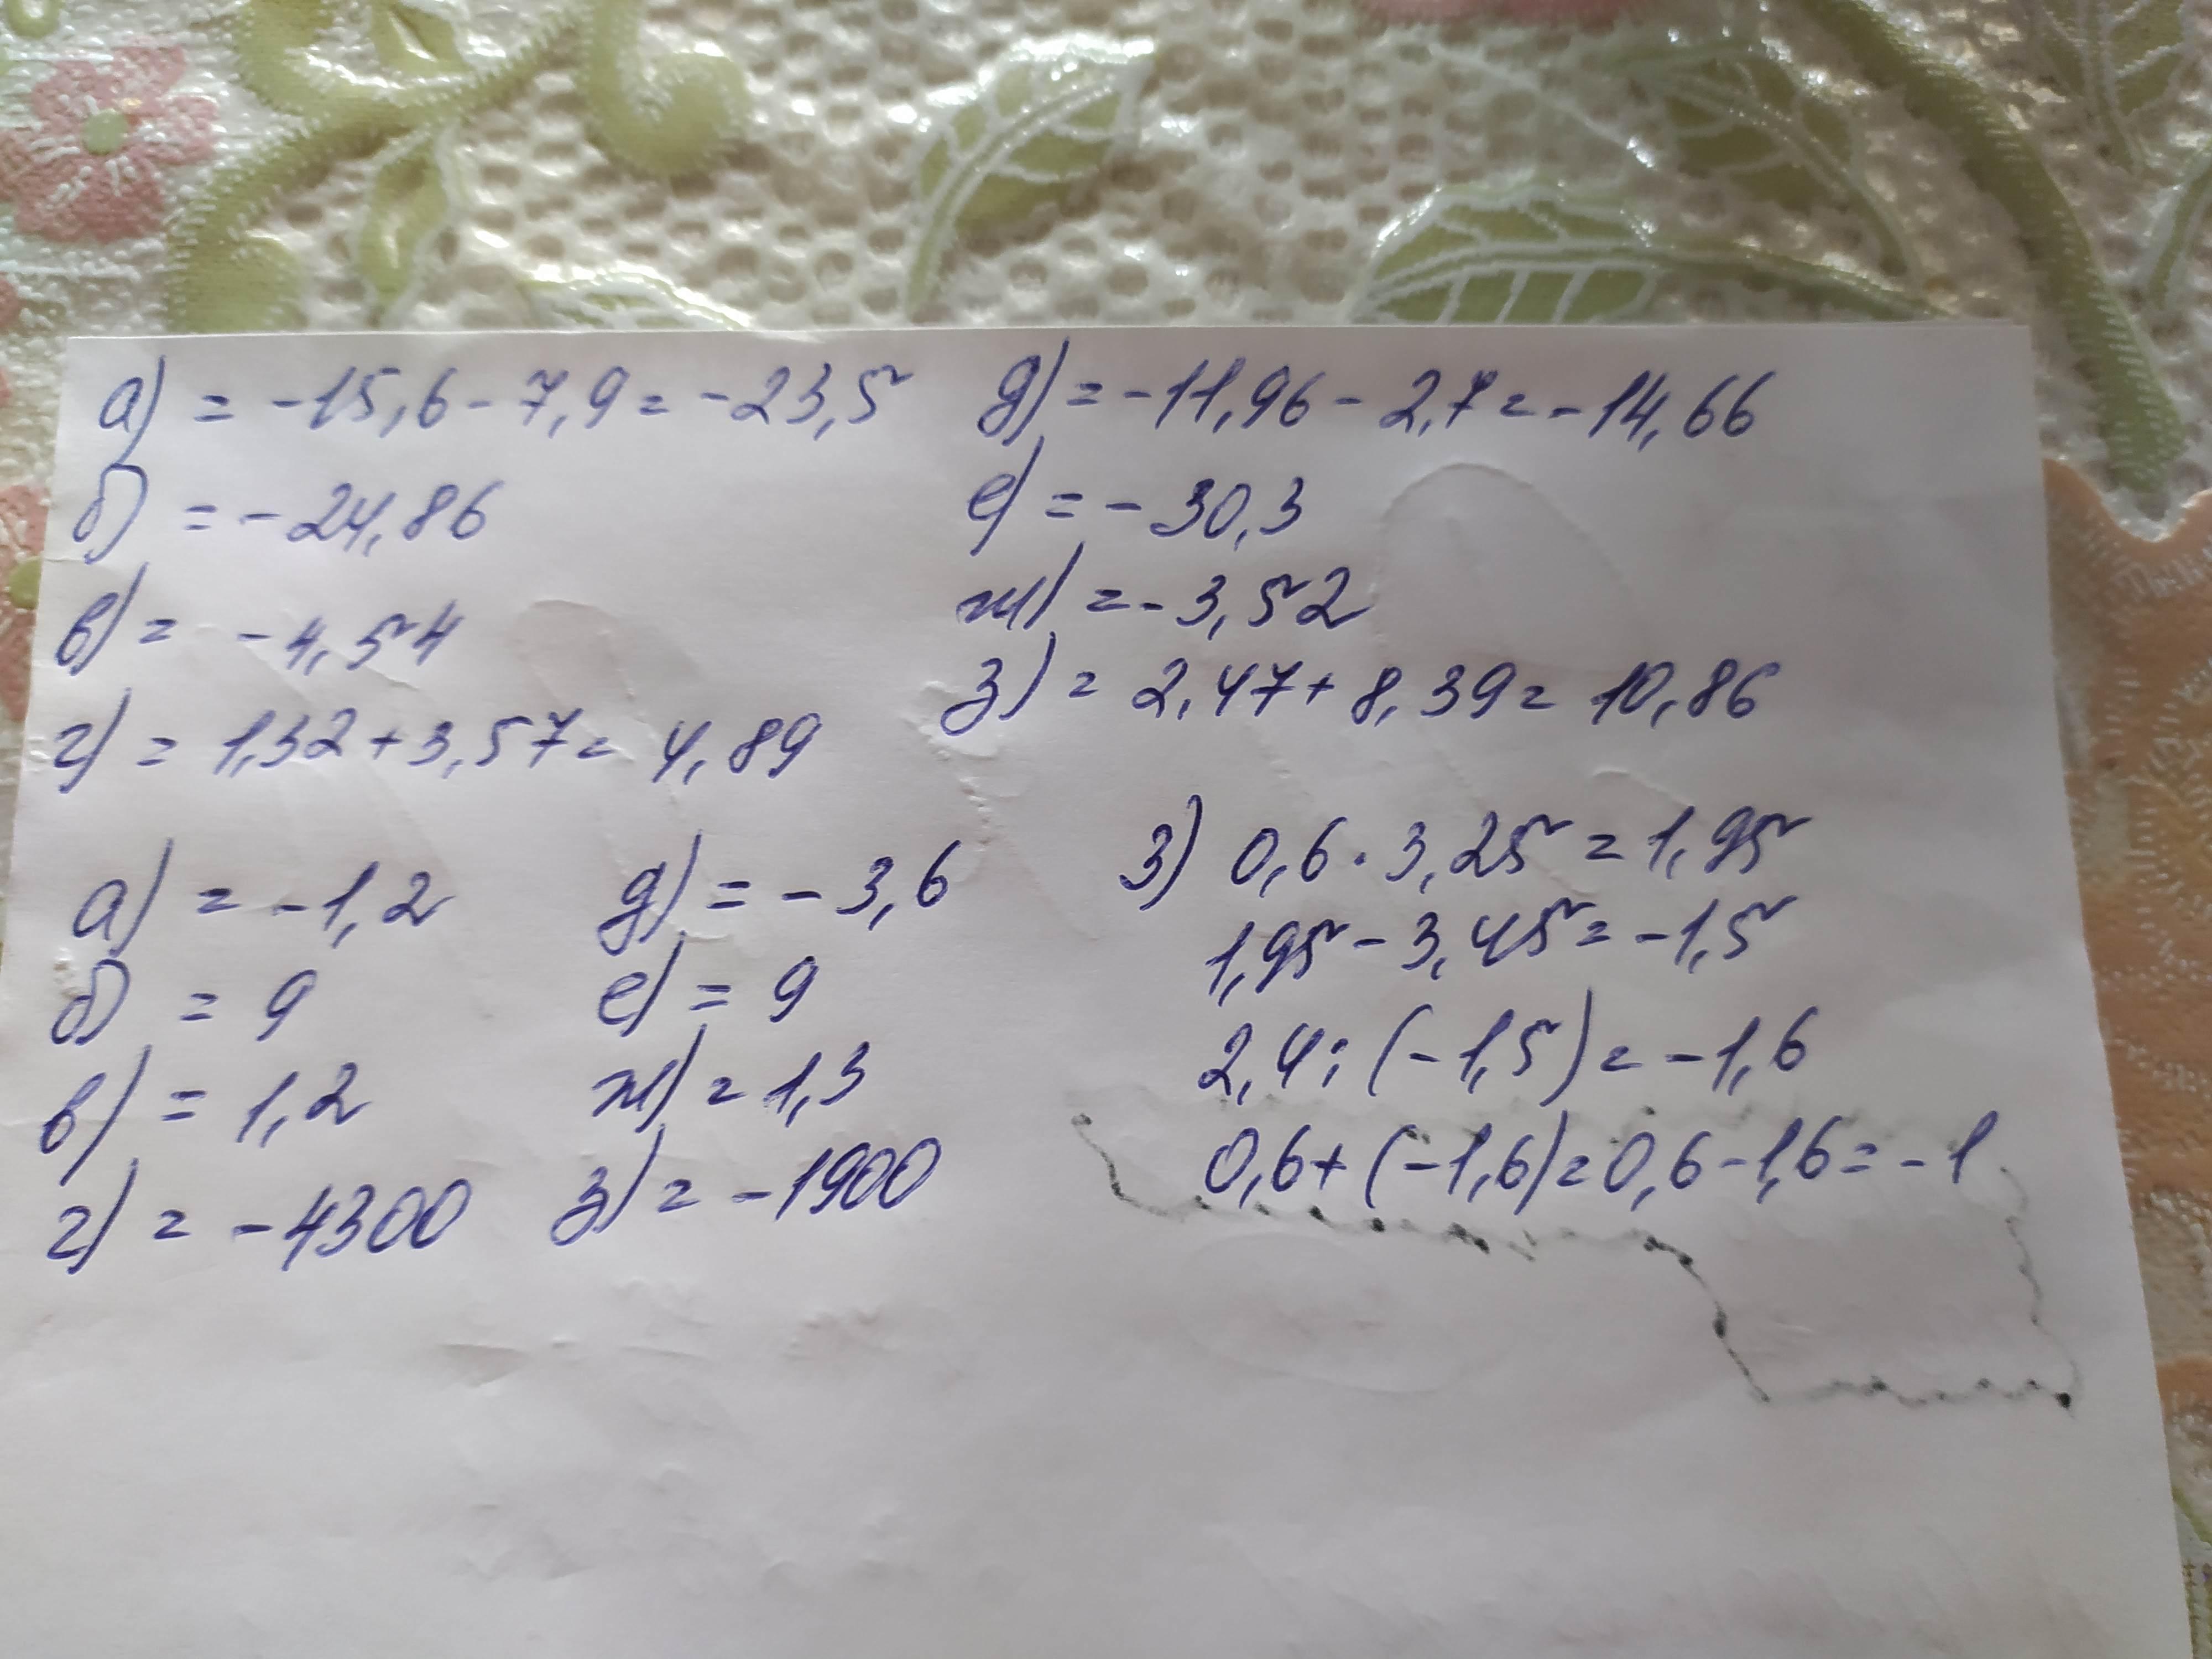 а) = -15,6 - 7,9 = -23,5
б) = -24,86
в) = -4,54
г) = 1,32 + 3,57 = 4,89
д) = -11,96 - 2,7 = -14,66
е) = -30,3
ж) = -3,52
з) = 2,47 + 8,39 = 10,86
а) = -1,2
б) = 9
в) = 1,2
г) = -4300
д) = -3,6
е) = 9
ж) = 1,3
з) = -1900
3) 0,6 · 3,25 = 1,95
1,95 - 3,45 = -1,5
2,4 : (-1,5) = -1,6
0,6 + (-1,6) = 0,6 - 1,6 = -1